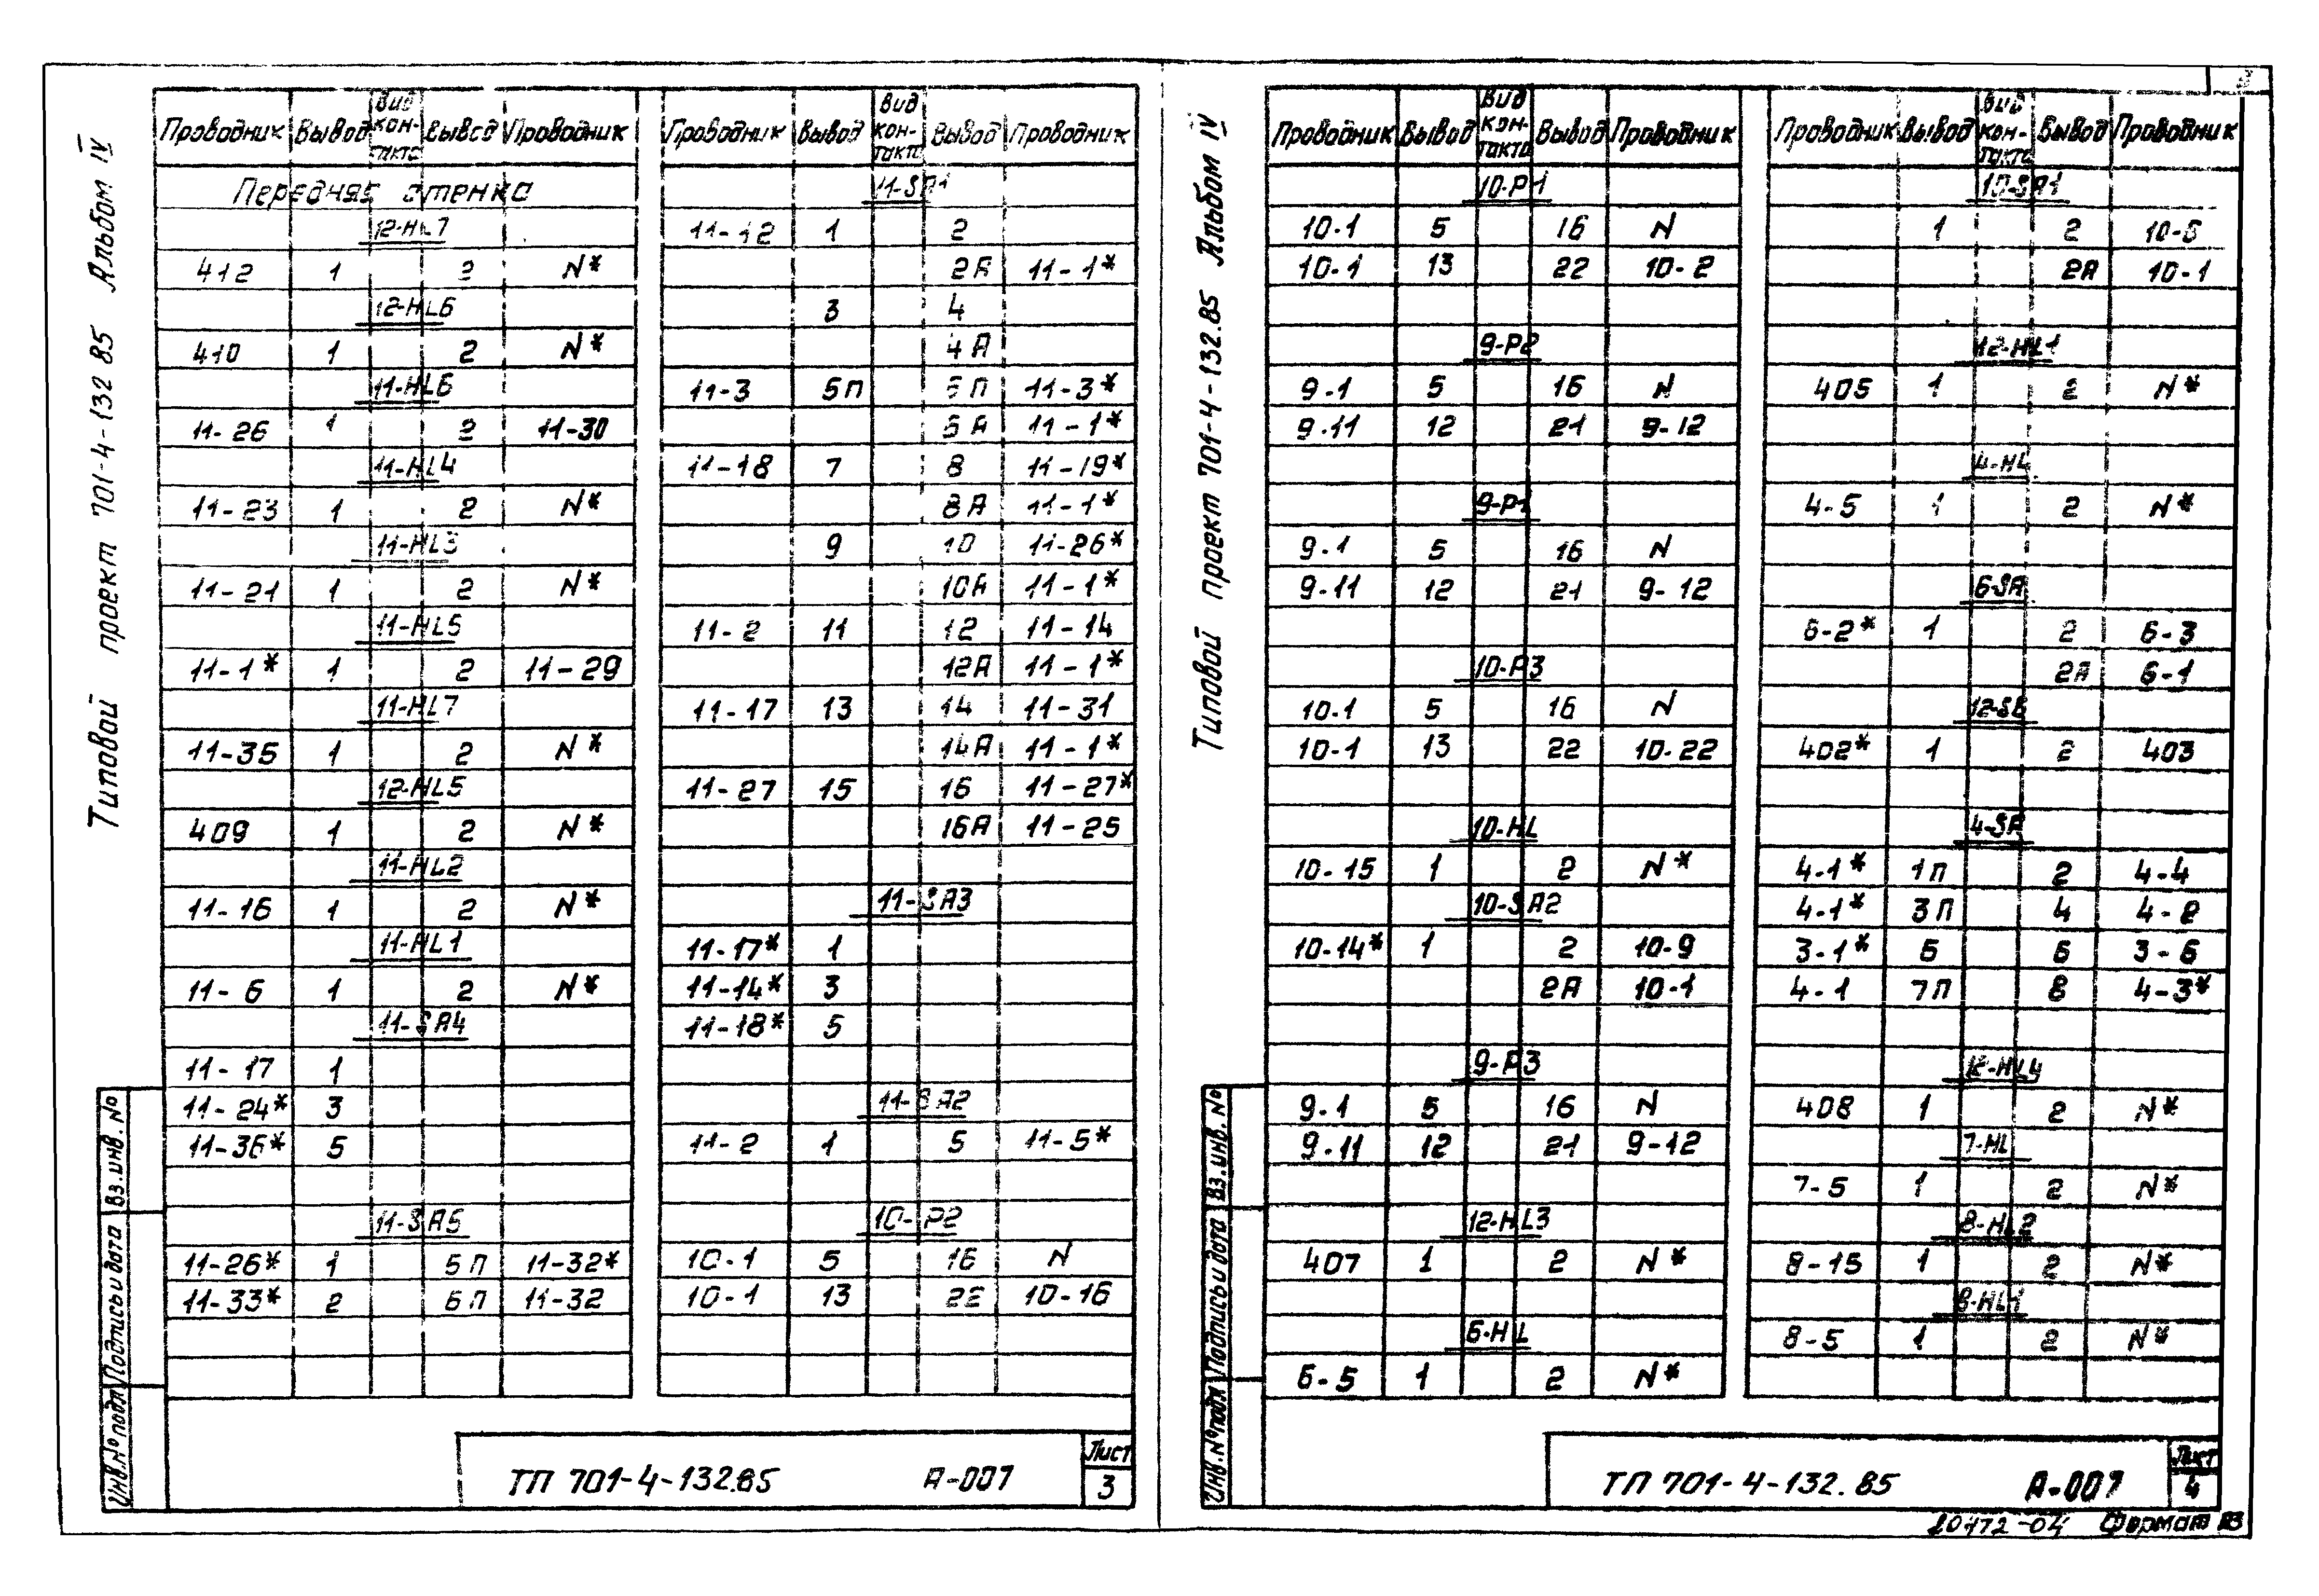 Типовой проект 701-4-132 85 Альбом IV
Проводник Вывод Вид контакта Вывод Проводник
Передняя стенка
12-HL7
412 1 2 N*
12-HL6
410 1 2 N*
11-HL6
11-26 1 2 11-30
11-HL4
11-23 1 2 N*
11-HL3
11-21 1 2 N*
11-HL5
11-1* 1 2 11-29
11-HL7
11-35 1 2 N*
12-HL5
409 1 2 N*
11-HL2
11-16 1 2 N*
11-HL1
11-6 1 2 N*
11-SA4
11-17 1
11-24* 3
11-36* 5
11-SA5
11-26* 1 5П 11-32*
11-33* 2 6П 11-32
Проводник Вывод Вид контакта Вывод Проводник
11-SA1
11-12 1 2
2А 11-1*
3 4
4А
11-3 5П 6П 11-3*
6А 11-1*
11-18 7 8 11-19*
8А 11-1*
9 10 11-26*
10А 11-1*
11-2 11 12 11-14
12А 11-1*
11-17 13 14 11-31
14А 11-1*
11-27 15 16 11-27*
16А 11-25
11-SA3
11-17* 1
11-14* 3
11-18* 5
11-SA2
11-2 1 5 11-5*
10-P2
10-1 5 16 N
10-1 13 22 10-16
Инв.№ подл Подпись и дата Вз.инв.№
ТП 701-4-132.85 А-007
Лист
3
Типовой проект 701-4-132.85 Альбом IV
Проводник Вывод Вид контакта Вывод Проводник
10-P1
10-1 5 16 N
10-1 13 22 10-2
9-P2
9-1 5 16 N
9-11 12 21 9-12
9-P1
9-1 5 16 N
9-11 12 21 9-12
10-P3
10-1 5 16 N
10-1 13 22 10-22
10-HL
10-15 1 2 N*
10-SA2
10-14* 1 2 10-9
2А 10-1
9-P3
9-1 5 16 N
9-11 12 21 9-12
12-HL3
407 1 2 N*
6-HL
6-5 1 2 N*
Проводник Вывод Вид контакта Вывод Проводник
10-SA1
1 2 10-6
2А 10-1
12-HL1
405 1 2 N*
4-HL
4-5 1 2 N*
6-SA
6-2* 1 2 6-3
2А 6-1
12-SB
402* 1 2 403
4-SA
4-1* 1П 2 4-4
4-1* 3П 4 4-2
3-1* 5 6 3-6
4-1 7П 8 4-3*
12-HL4
408 1 2 N*
7-HL
7-5 1 2 N*
8-HL2
8-15 1 2 N*
8-HL1
8-5 1 2 N*
Инв.№ подл Подпись и дата Вз.инв.№
ТП 701-4-132.85 А-007
Лист
4
20472-04 Формат А3